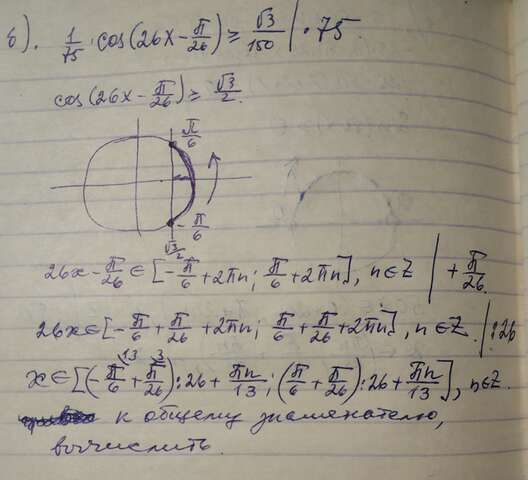 б). 1/75 · cos(26x - π/26) ≥ √3/150 | · 75
cos(26x - π/26) ≥ √3/2.
π/6
-π/6
√3/2
26x - π/26 ∈ [-π/6 + 2πn; π/6 + 2πn], n∈Z | + π/26
26x ∈ [-π/6 + π/26 + 2πn; π/6 + π/26 + 2πn], n∈Z. | :26
x ∈ [(-π/6^13 + π/26^3):26 + πn/13; (π/6 + π/26):26 + πn/13], n∈Z.
к общему знаменателю,
вычислить.